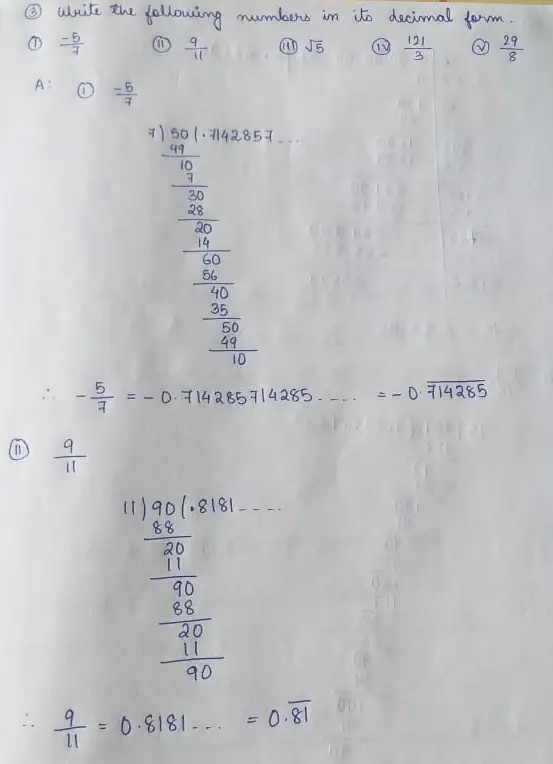 ③ Write the following numbers in its decimal form.
ⓘ -5/7 ⓘⓘ 9/11 ⓘⓘⓘ √5 ⓘⓥ 121/3 ⓥ 29/8
A: ⓘ -5/7
7) 50 (.7142857....
49
10
7
30
28
20
14
60
56
40
35
50
49
10
∴ -5/7 = -0.714285714285..... = -0.7̅1̅4̅2̅8̅5̅
ⓘⓘ 9/11
11) 90 (.8181----.
88
20
11
90
88
20
11
90
∴ 9/11 = 0.8181... = 0.8̅1̅